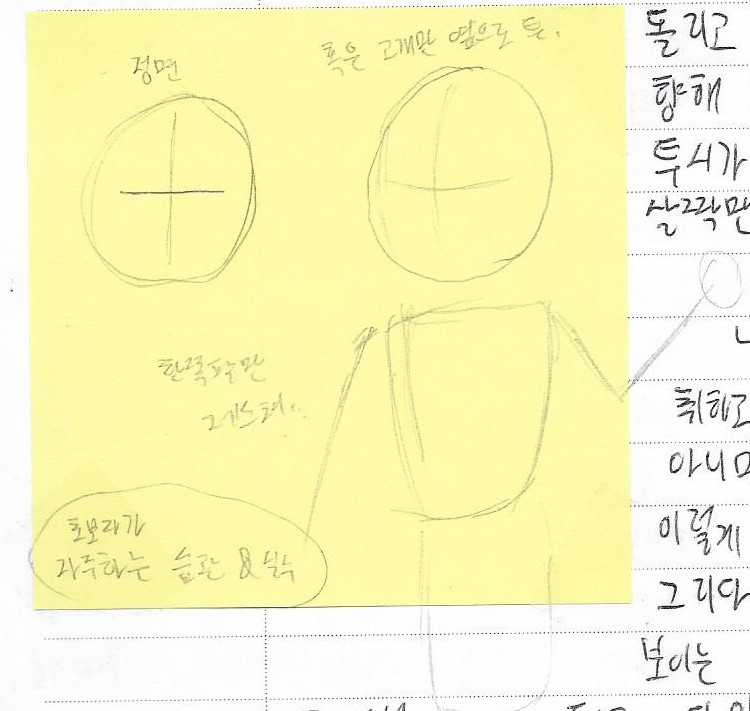 정면
혹은 고개만 옆으로 투.
한쪽팔만
제스쳐..
초보자가
자주하는 습관 & 실수
돌리고
향해
투시가
살짝만
취하고
아니
이렇게
그리다
보이는